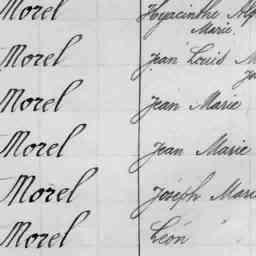 Morel Hyacinthe Alp
Marie.
Morel Jean Louis M
Morel Jean Marie
Morel Jean Marie
Morel Joseph Mari
Morel Léon "